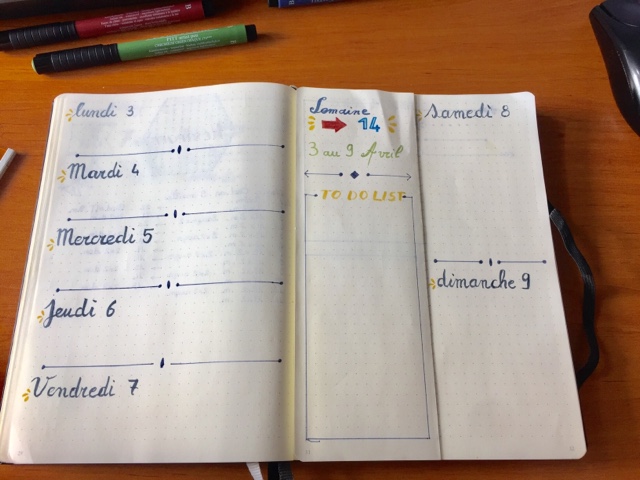 Lundi 3
Mardi 4
Mercredi 5
Jeudi 6
Vendredi 7
Semaine
14
3 au 9 Avril
TO DO LIST
Samedi 8
dimanche 9